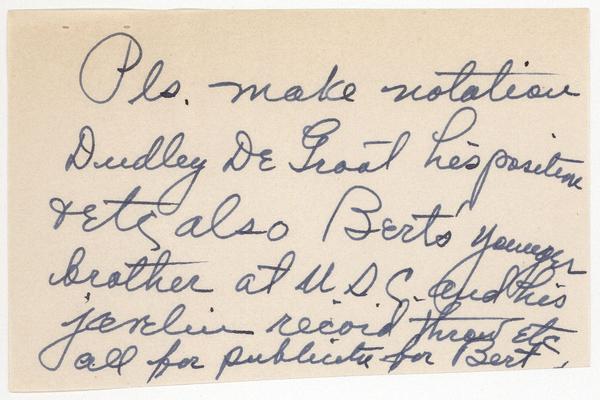 Pls. make notation
Dudley De Groot his position
& Etc also Bert's younger
brother at U.S.C. and his
javelin record throw etc
all for publicity for Bert.